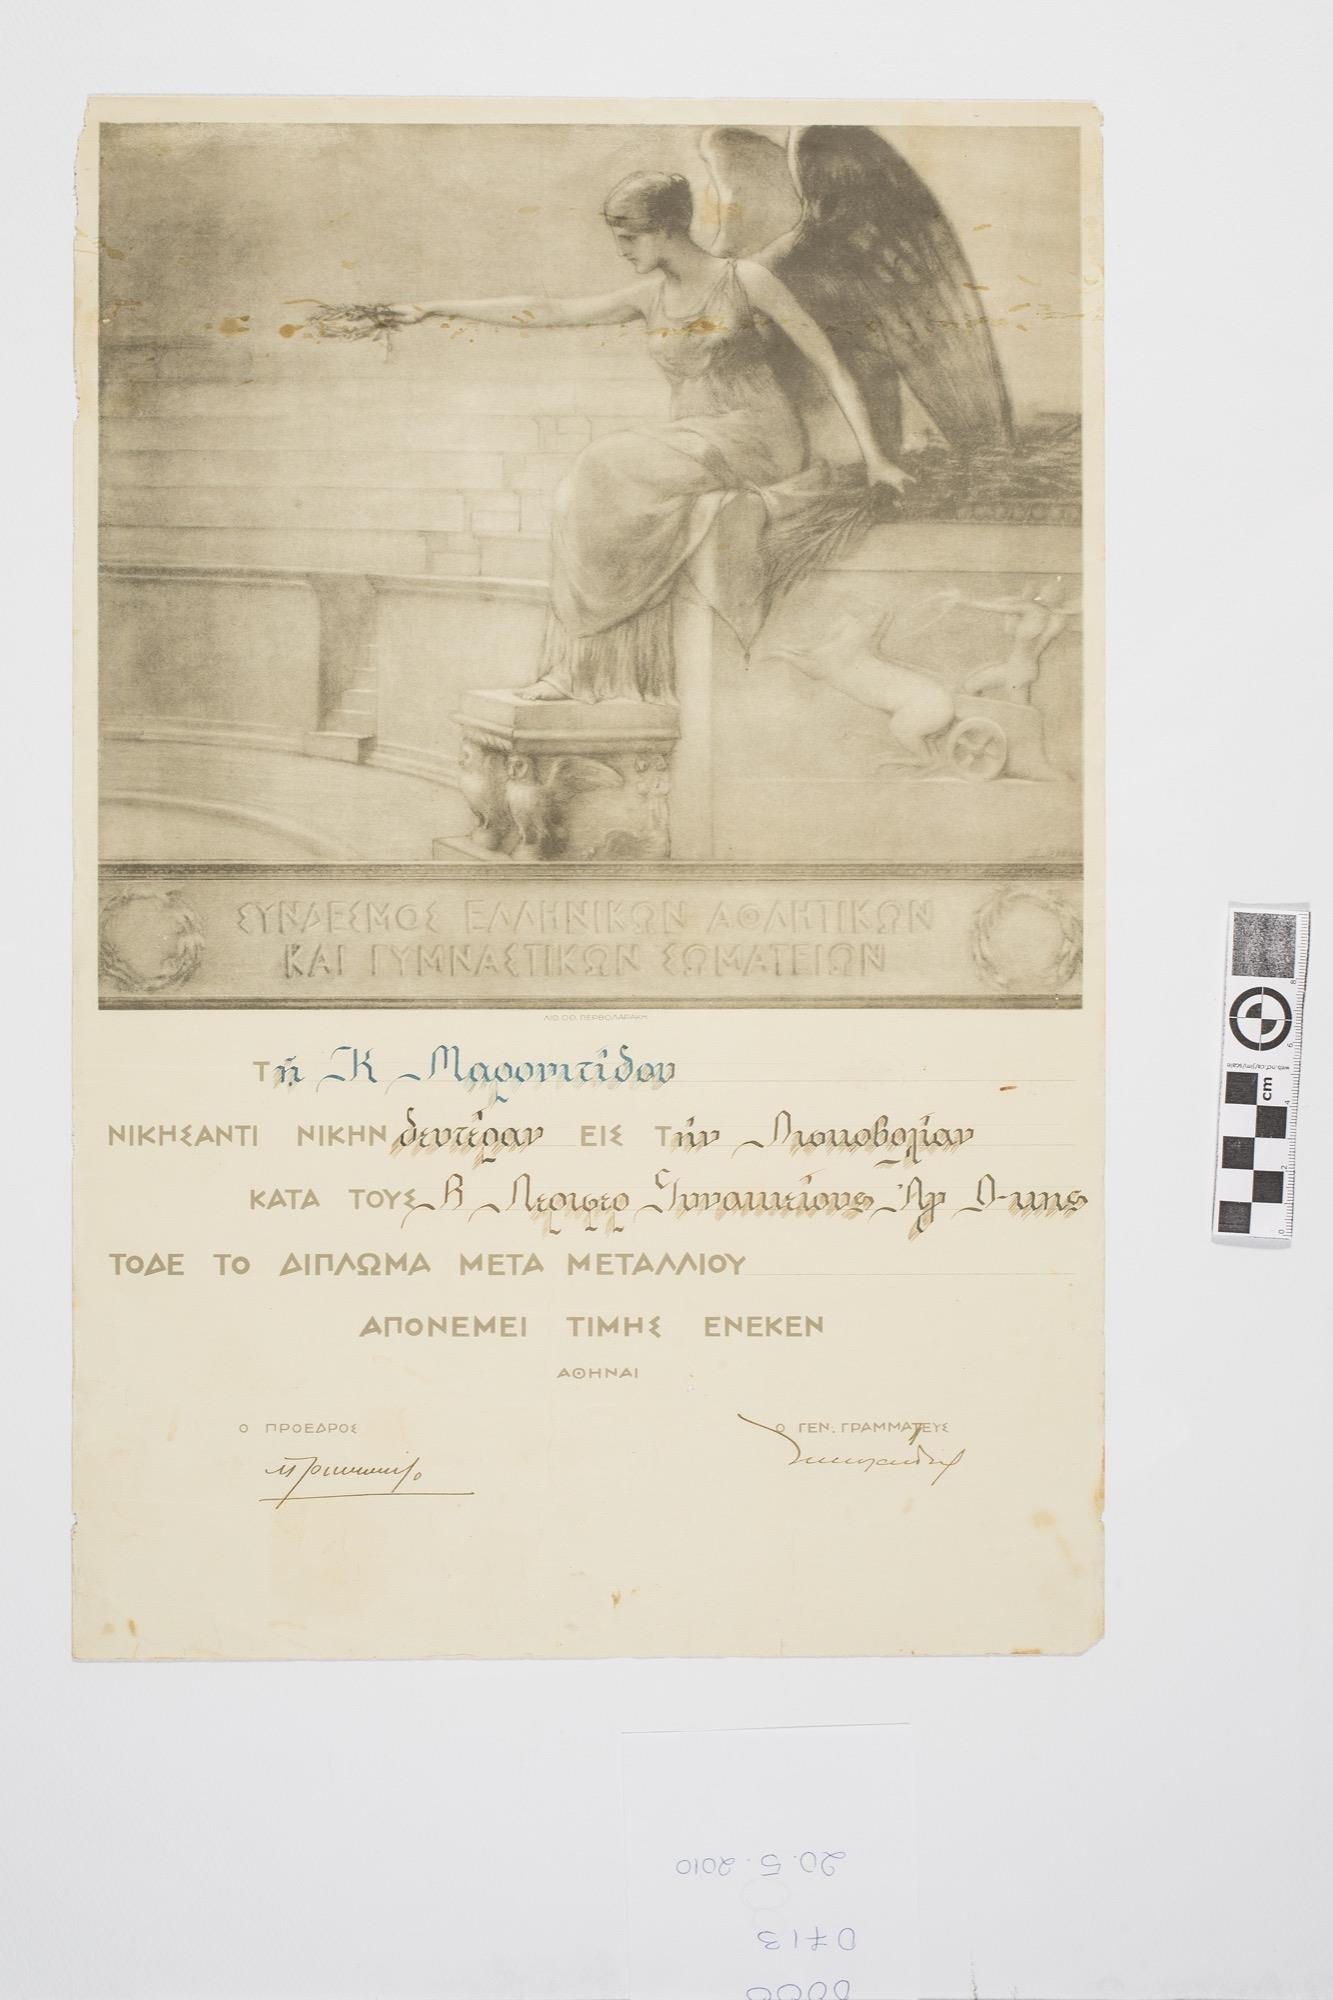 ΣΥΝΔΕΣΜΟΣ ΕΛΛΗΝΙΚΩΝ ΑΘΛΗΤΙΚΩΝ
ΚΑΙ ΓΥΜΝΑΣΤΙΚΩΝ ΣΩΜΑΤΕΙΩΝ
ΛΙΘ. ΠΕΡΒΟΛΑΡΑΚΗ
Τῇ Κ Μαρονιτίδου
ΝΙΚΗΣΑΝΤΙ ΝΙΚΗΝ δευτέραν ΕΙΣ Την Δισκοβολίαν
ΚΑΤΑ ΤΟΥΣ Β Περιφερ Γυναικείους Ἀγ Δ-κης
ΤΟΔΕ ΤΟ ΔΙΠΛΩΜΑ ΜΕΤΑ ΜΕΤΑΛΛΙΟΥ
ΑΠΟΝΕΜΕΙ ΤΙΜΗΣ ΕΝΕΚΕΝ
ΑΘΗΝΑΙ
Ο ΠΡΟΕΔΡΟΣ
Ο ΓΕΝ. ΓΡΑΜΜΑΤΕΥΣ
cm
20.5.2010
0713
0000